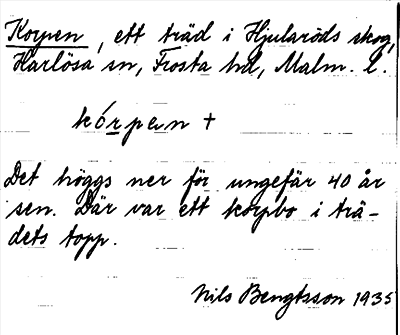 Korpen, ett träd i Hjularöds skog,
Harlösa sn, Frosta hd, Malm. l.
kórpen +
Det höggs ner för ungefär 40 år
sen. Där var ett korpbo i trä-
dets topp.
Nils Bengtsson 1935